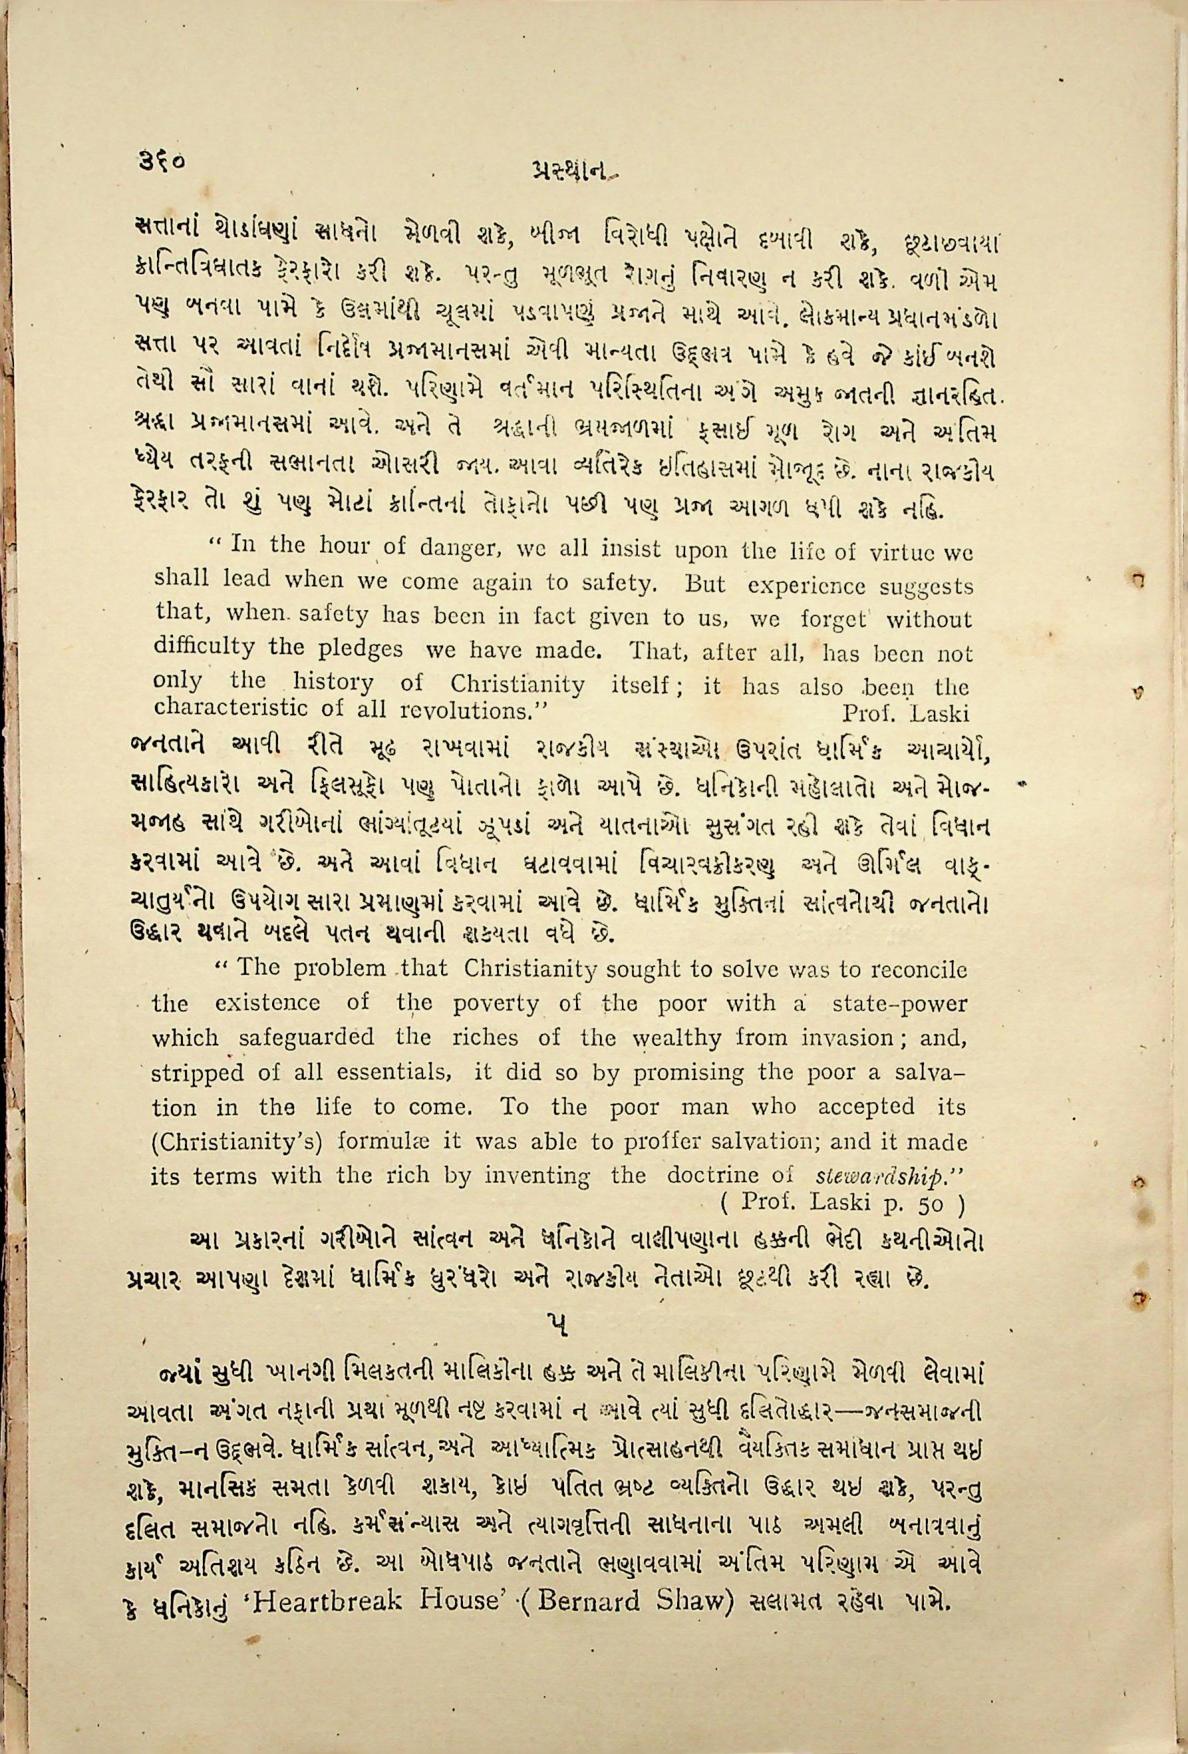 ૩૬૦
પ્રસ્થાન
સત્તાનાં થોડાંઘણાં સાધનો મેળવી શકે, બીજા વિરોધી પક્ષોને દબાવી શકે, છૂટાછવાયા
ક્રાન્તિવિઘાતક ફેરફારો કરી શકે. પરન્તુ મૂળભૂત રોગનું નિવારણ ન કરી શકે. વળી એમ
પણ બનવા પામે કે ઉલમાંથી ચૂલમાં પડવાપણું પ્રજાને માથે આવે. લોકમાન્ય પ્રધાનમંડળો
સત્તા પર આવતાં નિર્દોષ પ્રજામાનસમાં એવી માન્યતા ઉદ્‌ભવ પામે કે હવે જે કાંઈ બનશે
તેથી સૌ સારાં વાનાં થશે. પરિણામે વર્તમાન પરિસ્થિતિના અંગે અમુક જાતની જ્ઞાનરહિત
શ્રદ્ધા પ્રજામાનસમાં આવે. અને તે શ્રદ્ધાની ભ્રમજાળમાં ફસાઈ મૂળ રોગ અને અંતિમ
ધ્યેય તરફની સભાનતા ઓસરી જાય. આવા વ્યતિરેક ઇતિહાસમાં મોજૂદ છે. નાના રાજકીય
ફેરફાર તો શું પણ મોટાં ક્રાન્તિનાં તોફાનો પછી પણ પ્રજા આગળ ધપી શકે નહિ.
“ In the hour of danger, we all insist upon the life of virtue we
shall lead when we come again to safety. But experience suggests
that, when safety has been in fact given to us, we forget without
difficulty the pledges we have made. That, after all, has been not
only the history of Christianity itself ; it has also been the
characteristic of all revolutions.” Prof. Laski
જનતાને આવી રીતે મૂઢ રાખવામાં રાજકીય સંસ્થાઓ ઉપરાંત ધાર્મિક આચાર્યો,
સાહિત્યકારો અને ફિલસૂફો પણ પોતાનો ફાળો આપે છે. ધનિકોની મહોલાતો અને મોજ-
મજાહ સાથે ગરીબોનાં ભાંગ્યાંતૂટ્યાં ઝૂપડાં અને યાતનાઓ સુસંગત રહી શકે તેવાં વિધાન
કરવામાં આવે છે. અને આવાં વિધાન ઘટાવવામાં વિચારવક્રીકરણ અને ઊર્મિલ વાક્-
ચાતુર્યનો ઉપયોગ સારા પ્રમાણમાં કરવામાં આવે છે. ધાર્મિક મુક્તિનાં સાંત્વનોથી જનતાનો
ઉદ્ધાર થવાને બદલે પતન થવાની શક્યતા વધે છે.
“ The problem that Christianity sought to solve was to reconcile
the existence of the poverty of the poor with a state-power
which safeguarded the riches of the wealthy from invasion ; and,
stripped of all essentials, it did so by promising the poor a salva-
tion in the life to come. To the poor man who accepted its
(Christianity’s) formulæ it was able to proffer salvation; and it made
its terms with the rich by inventing the doctrine of stewardship.”
( Prof. Laski p. 50 )
આ પ્રકારનાં ગરીબોને સાંત્વન અને ધનિકોને વાલીપણાના હક્કની ભેદી કથનીઓનો
પ્રચાર આપણા દેશમાં ધાર્મિક ધુરંધરો અને રાજકીય નેતાઓ છૂટથી કરી રહ્યા છે.
૫
જ્યાં સુધી ખાનગી મિલકતની માલિકીના હક્ક અને તે માલિકીના પરિણામે મેળવી લેવામાં
આવતા અંગત નફાની પ્રથા મૂળથી નષ્ટ કરવામાં ન આવે ત્યાં સુધી દલિતોદ્ધાર—જનસમાજની
મુક્તિ–ન ઉદ્‌ભવે. ધાર્મિક સાંત્વન, અને આધ્યાત્મિક પ્રોત્સાહનથી વૈયક્તિક સમાધાન પ્રાપ્ત થઇ
શકે, માનસિક સમતા કેળવી શકાય, કોઇ પતિત ભ્રષ્ટ વ્યક્તિનો ઉદ્ધાર થઇ શકે, પરન્તુ
દલિત સમાજનો નહિ. કર્મસંન્યાસ અને ત્યાગવૃત્તિની સાધનાના પાઠ અમલી બનાવવાનું
કાર્ય અતિશય કઠિન છે. આ બોધપાઠ જનતાને ભણાવવામાં અંતિમ પરિણામ એ આવે
કે ધનિકોનું ‘Heartbreak House’ ( Bernard Shaw) સલામત રહેવા પામે.